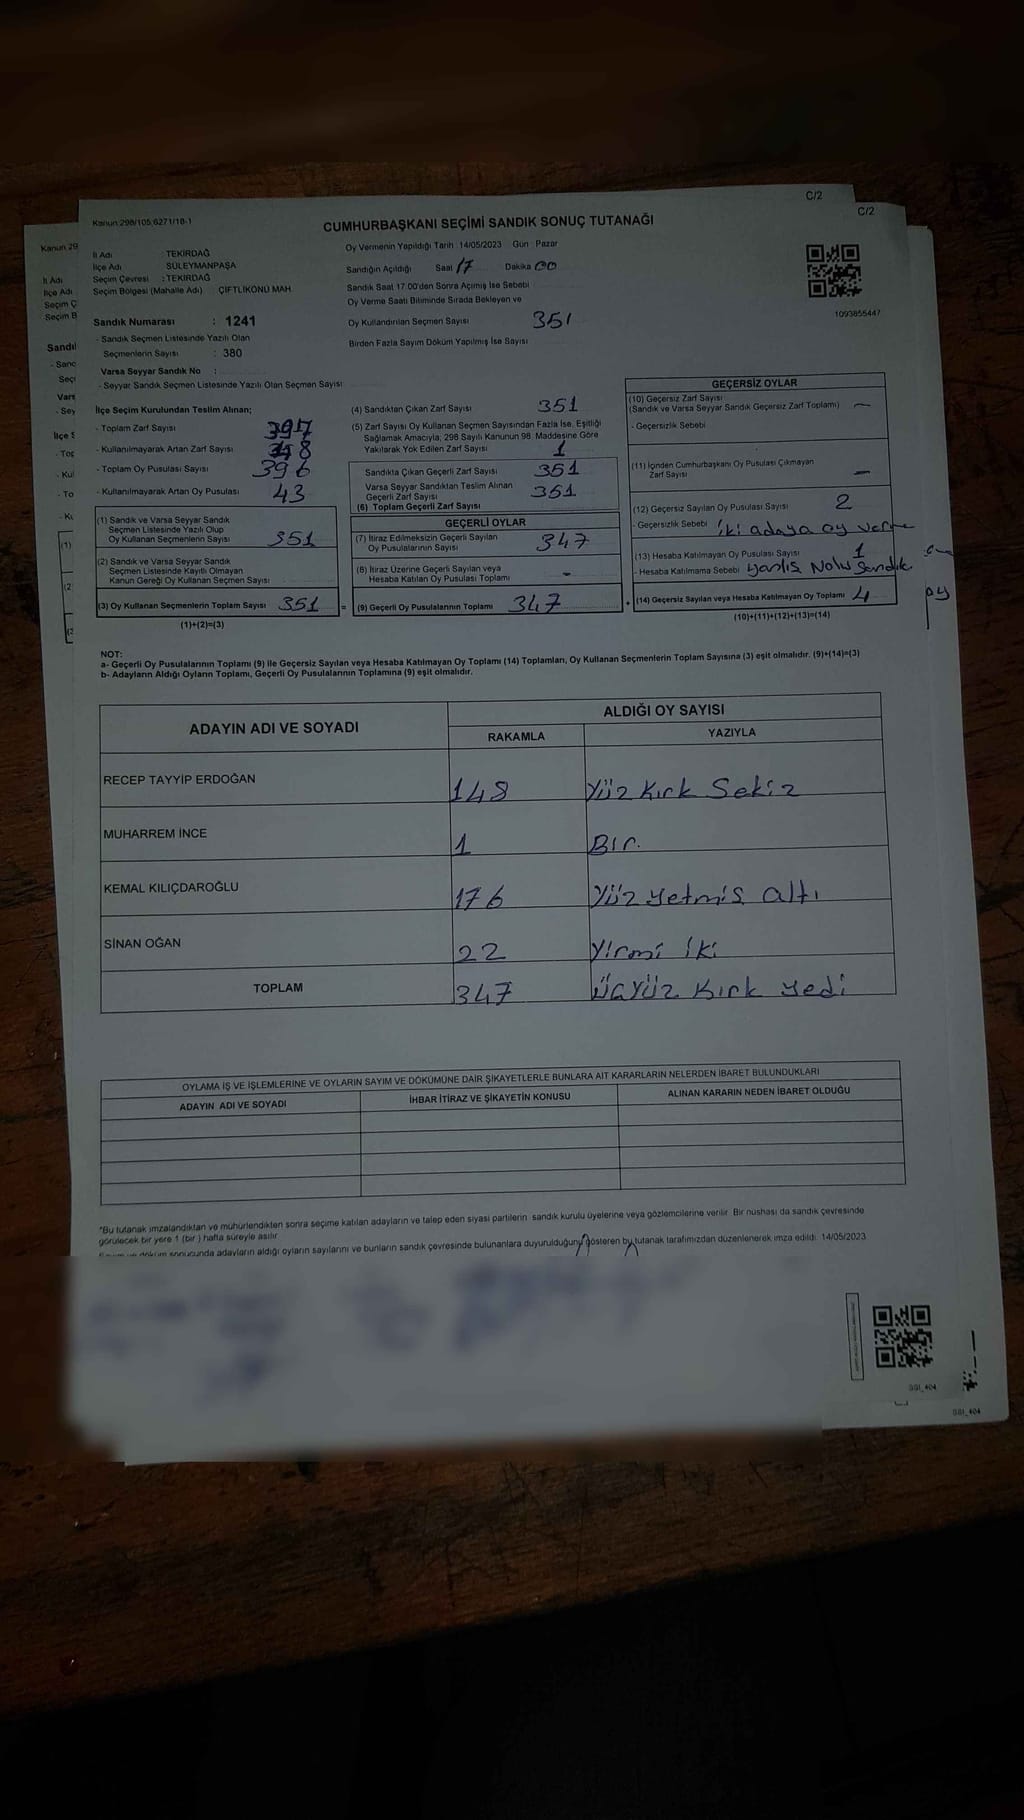 C/2
C/2
Kanun 298/105;6271/18-1
CUMHURBAŞKANI SEÇİMİ SANDIK SONUÇ TUTANAĞI
Kanun 29
İl Adı : TEKİRDAĞ
İlçe Adı : SÜLEYMANPAŞA
Seçim Çevresi : TEKİRDAĞ
Seçim Bölgesi (Mahalle Adı) ÇİFTLİKÖNÜ MAH.
Sandık Numarası : 1241
- Sandık Seçmen Listesinde Yazılı Olan
Seçmenlerin Sayısı : 380
Varsa Seyyar Sandık No :
- Seyyar Sandık Seçmen Listesinde Yazılı Olan Seçmen Sayısı
Oy Vermenin Yapıldığı Tarih 14/05/2023 Gün Pazar
Sandığın Açıldığı Saat 17 Dakika 00
Sandık Saat 17.00'den Sonra Açılmış İse Sebebi
Oy Verme Saati Bitiminde Sırada Bekleyen ve
Oy Kullandırılan Seçmen Sayısı 351
Birden Fazla Sayım Döküm Yapılmış İse Sayısı
1093855447
İl Adı
İlçe Adı
Seçim Ç
Seçim B
Sandı
- Sand
Seç
Vars
- Sey
İlçe S
- Top
- Kul
- To
- Ku
(1)
(2
İlçe Seçim Kurulundan Teslim Alınan;
- Toplam Zarf Sayısı 397
- Kullanılmayarak Artan Zarf Sayısı
- Toplam Oy Pusulası Sayısı 396
- Kullanılmayarak Artan Oy Pusulası 43
(1) Sandık ve Varsa Seyyar Sandık
Seçmen Listesinde Yazılı Olup
Oy Kullanan Seçmenlerin Sayısı 351
(2) Sandık ve Varsa Seyyar Sandık
Seçmen Listesinde Kayıtlı Olmayan
Kanun Gereği Oy Kullanan Seçmen Sayısı
(3) Oy Kullanan Seçmenlerin Toplam Sayısı 351 =
(1)+(2)=(3)
(4) Sandıktan Çıkan Zarf Sayısı 351
(5) Zarf Sayısı Oy Kullanan Seçmen Sayısından Fazla İse, Eşitliği
Sağlamak Amacıyla; 298 Sayılı Kanunun 98. Maddesine Göre
Yakılarak Yok Edilen Zarf Sayısı 1
Sandıkta Çıkan Geçerli Zarf Sayısı 351
Varsa Seyyar Sandıktan Teslim Alınan
Geçerli Zarf Sayısı 351
(6) Toplam Geçerli Zarf Sayısı
GEÇERLİ OYLAR
(7) İtiraz Edilmeksizin Geçerli Sayılan
Oy Pusulalarının Sayısı 347
(8) İtiraz Üzerine Geçerli Sayılan veya
Hesaba Katılan Oy Pusulası Toplamı -
(9) Geçerli Oy Pusulalarının Toplamı 347 +
GEÇERSİZ OYLAR
(10) Geçersiz Zarf Sayısı
(Sandık ve Varsa Seyyar Sandık Geçersiz Zarf Toplamı) —
- Geçersizlik Sebebi
(11) İçinden Cumhurbaşkanı Oy Pusulası Çıkmayan
Zarf Sayısı —
(12) Geçersiz Sayılan Oy Pusulası Sayısı 2
- Geçersizlik Sebebi iki adaya oy verme
(13) Hesaba Katılmayan Oy Pusulası Sayısı 1
- Hesaba Katılmama Sebebi yanlış Nolu Sandık
(14) Geçersiz Sayılan veya Hesaba Katılmayan Oy Toplamı 4
(10)+(11)+(12)+(13)=(14)
oy
NOT:
a- Geçerli Oy Pusulalarının Toplamı (9) ile Geçersiz Sayılan veya Hesaba Katılmayan Oy Toplamı (14) Toplamları, Oy Kullanan Seçmenlerin Toplam Sayısına (3) eşit olmalıdır. (9)+(14)=(3)
b- Adayların Aldığı Oyların Toplamı, Geçerli Oy Pusulalarının Toplamına (9) eşit olmalıdır.
ADAYIN ADI VE SOYADI
ALDIĞI OY SAYISI
RAKAMLA YAZIYLA
RECEP TAYYİP ERDOĞAN 148 Yüz Kırk Sekiz
MUHARREM İNCE 1 Bir.
KEMAL KILIÇDAROĞLU 176 Yüz yetmiş altı
SİNAN OĞAN 22 Yirmi iki
TOPLAM 347 üçyüz kırk yedi
OYLAMA İŞ VE İŞLEMLERİNE VE OYLARIN SAYIM VE DÖKÜMÜNE DAİR ŞİKAYETLERLE BUNLARA AİT KARARLARIN NELERDEN İBARET BULUNDUKLARI
ADAYIN ADI VE SOYADI İHBAR İTİRAZ VE ŞİKAYETİN KONUSU ALINAN KARARIN NEDEN İBARET OLDUĞU
*Bu tutanak imzalandıktan ve mühürlendikten sonra seçime katılan adayların ve talep eden siyasi partilerin sandık kurulu üyelerine veya gözlemcilerine verilir. Bir nüshası da sandık çevresinde
görülecek bir yere 1 (bir) hafta süreyle asılır.
döküm sonucunda adayların aldığı oyların sayılarını ve bunların sandık çevresinde bulunanlara duyurulduğunu gösteren bu tutanak tarafımızdan düzenlenerek imza edildi. 14/05/2023
SS1_404
SS1_404